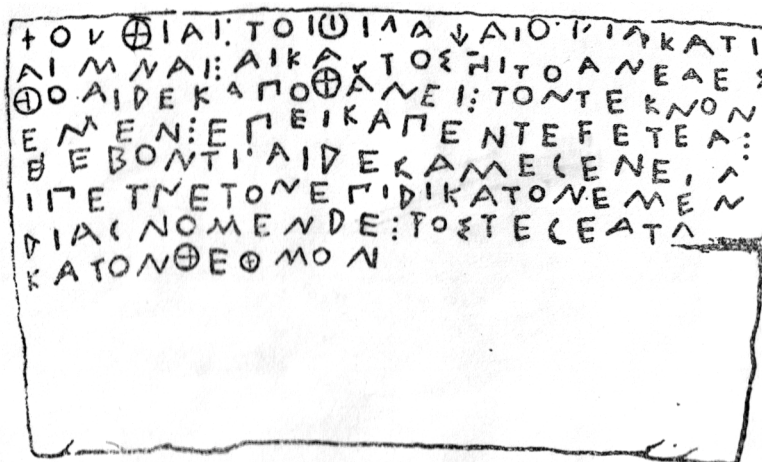 +ΟΥΘΙΑΙ⁝ΤΟΙΦΙΛΑ↓ΑΙΟ ΔΙΑΚΑΤΙ
ΑΙΜΝΑΙ⁝ΑΙΚΑΥΤΟΣΗΙΤΟΑΝΕΛΕΣ
ΘΟΑΙΔΕΚΑΠΟΘΑΝΕΙ⁝ΤΟΝΤΕΚΝΟΝ
ΕΜΕΝ⁝ΕΠΕΙΚΑΠΕΝΤΕϜΕΤΕΑ⁝
ΗΕΒΟΝΤΙ ΑΙΔΕΚΑΜΕΓΕΝΕΙΛ
ΙΠΕΤΝΕΤΟΝΕΠΙΔΙΚΑΤΟΝΕΜΕΝ
ΔΙΑΓΝΟΜΕΝΔΕ⁝ΤΟΣΤΕΓΕΑΤΑ
ΚΑΤΟΝΘΕΘΜΟΝ